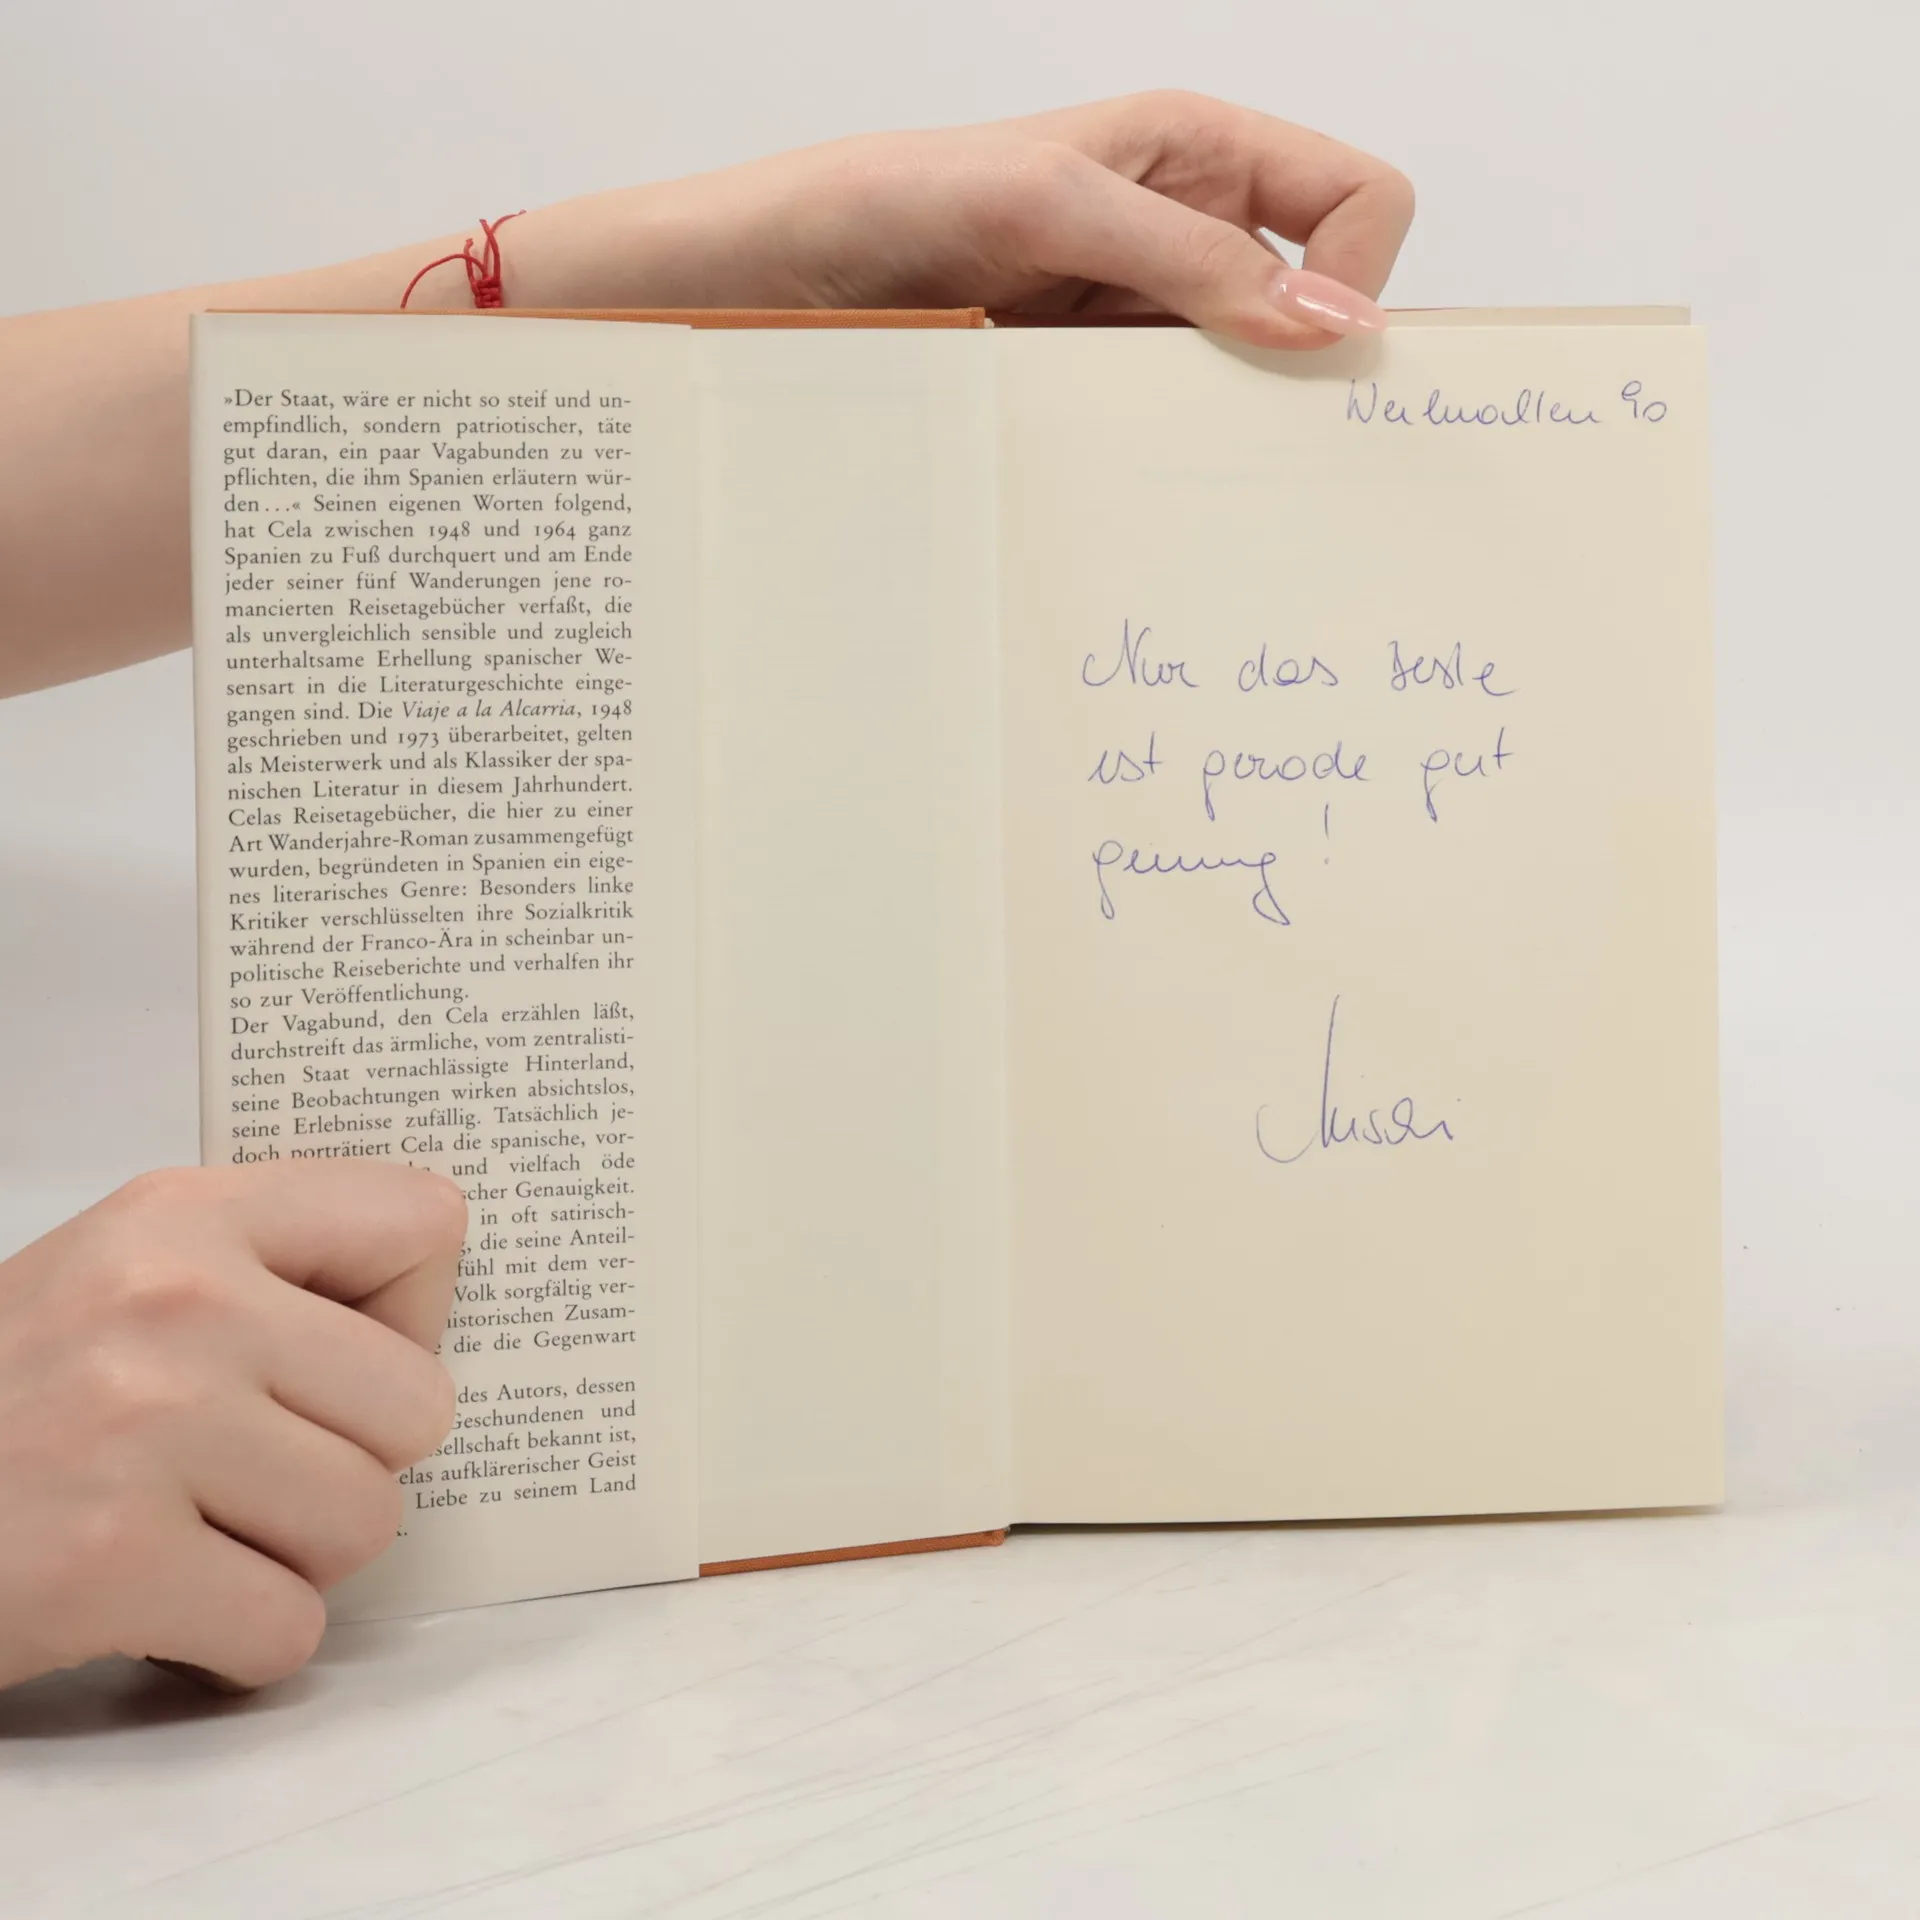 »Der Staat, wäre er nicht so steif und un-
empfindlich, sondern patriotischer, täte
gut daran, ein paar Vagabunden zu ver-
pflichten, die ihm Spanien erläutern wür-
den...« Seinen eigenen Worten folgend,
hat Cela zwischen 1948 und 1964 ganz
Spanien zu Fuß durchquert und am Ende
jeder seiner fünf Wanderungen jene ro-
mancierten Reisetagebücher verfaßt, die
als unvergleichlich sensible und zugleich
unterhaltsame Erhellung spanischer We-
sensart in die Literaturgeschichte einge-
gangen sind. Die Viaje a la Alcarria, 1948
geschrieben und 1973 überarbeitet, gelten
als Meisterwerk und als Klassiker der spa-
nischen Literatur in diesem Jahrhundert.
Celas Reisetagebücher, die hier zu einer
Art Wanderjahre-Roman zusammengefügt
wurden, begründeten in Spanien ein eige-
nes literarisches Genre: Besonders linke
Kritiker verschlüsselten ihre Sozialkritik
während der Franco-Ära in scheinbar un-
politische Reiseberichte und verhalfen ihr
so zur Veröffentlichung.
Der Vagabund, den Cela erzählen läßt,
durchstreift das ärmliche, vom zentralisti-
schen Staat vernachlässigte Hinterland,
seine Beobachtungen wirken absichtslos,
seine Erlebnisse zufällig. Tatsächlich je-
doch porträtiert Cela die spanische, vor-
und vielfach öde
scher Genauigkeit.
in oft satirisch-
, die seine Anteil-
fühl mit dem ver-
Volk sorgfältig ver-
istorischen Zusam-
die die Gegenwart
des Autors, dessen
Geschundenen und
sellschaft bekannt ist,
elas aufklärerischer Geist
Liebe zu seinem Land
Weihnachten 90
Nur das Beste
ist gerade gut
genug!